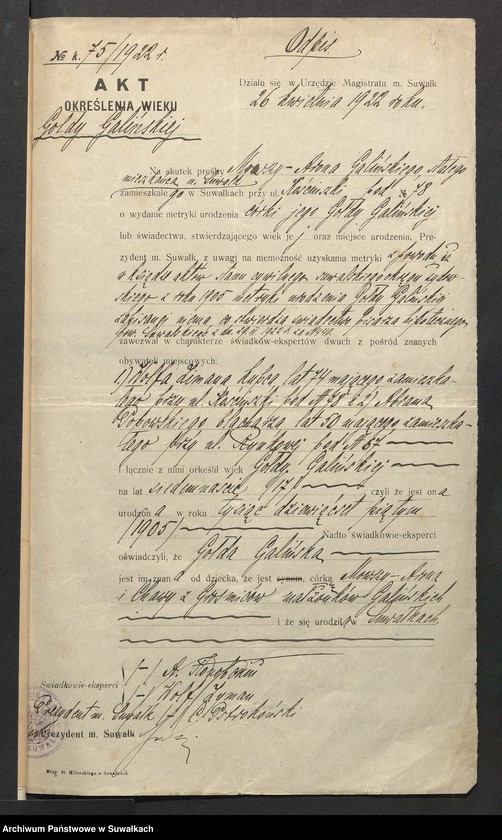 № k. 75/1922 r.
Odpis
AKT
OKREŚLENIA WIEKU
Gołdy Galińskiej
Działo się w Urzędzie Magistratu m. Suwałk
26 kwietnia 1922 roku.
Na skutek prośby Mowszy-Arona Galińskiego stałego
mieszkańca m. Suwałk
zamieszkałego w Suwałkach przy ul. pod № 78
o wydanie metryki urodzenia córki jego Gołdy Galińskiej
lub świadectwa, stwierdzającego wiek jej oraz miejsce urodzenia, Pre-
zydent m. Suwałk, z uwagi na niemożność uzyskania metryki z powodu iż
w księdze aktów stanu cywilnego suwalskiego okręgu żydow-
skiego z roku 1905 metryki urodzenia Gołdy Galińskiej
zapisanej niema, co stwierdza świadectwo Pisarza Hipotecznego
pow. Suwalskiego z dn. 1922 r. za №
zawezwał w charakterze świadków-ekspertów dwuch z pośród znanych
obywateli miejscowych:
1) Wolfa Zimana kupca, lat 74 mającego zamieszka-
łego przy ul. pod № 78 i 2) Abrama
Popowskiego lat 50 mającego zamieszka-
łego przy ul. Rynkowej pod № 67
i łącznie z nimi orkeślił wiek Gołdy Galińskiej
na lat siedemnaście (17) czyli że jest ona
urodzona w roku tysiąc dziewięćset piątym
(1905) Nadto świadkowie-eksperci
oświadczyli, że Gołda Galińska
jest im znana od dziecka, że jest synem, córką Mowszy-Arona
i Chawy z małżonków Galińskich
i że się urodziła w Suwałkach.
Świadkowie-eksperci
(-) A.
(-) Wolf Zyman
Prezydent m. Suwałk (-)
Prezydent m. Suwałk
Druk. St. Milewskiego w Suwałkach
Archiwum Państwowe w Suwałkach